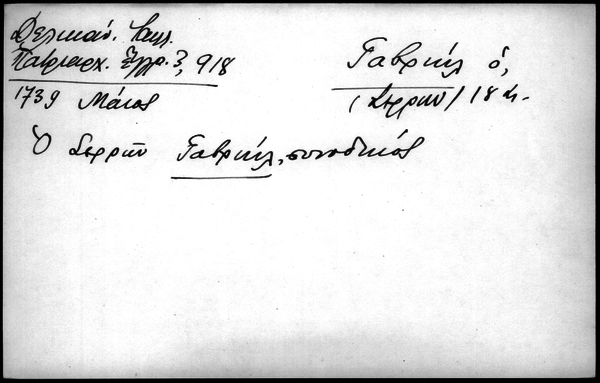 Δελικάν. Καλ.
Πατριαρχ. Ἔγγρ. 3, 918
1739 Μάιος
Γαβριήλ ὁ,
(Σερρῶν) 18 αι.
Ὁ Σερρῶν Γαβριήλ, συνοδικός